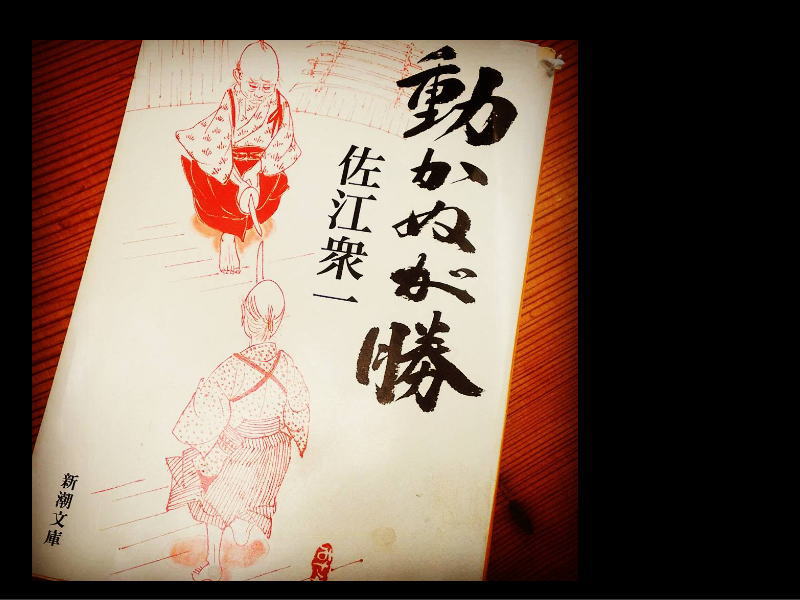 動かぬが勝
佐江衆一
新潮文庫